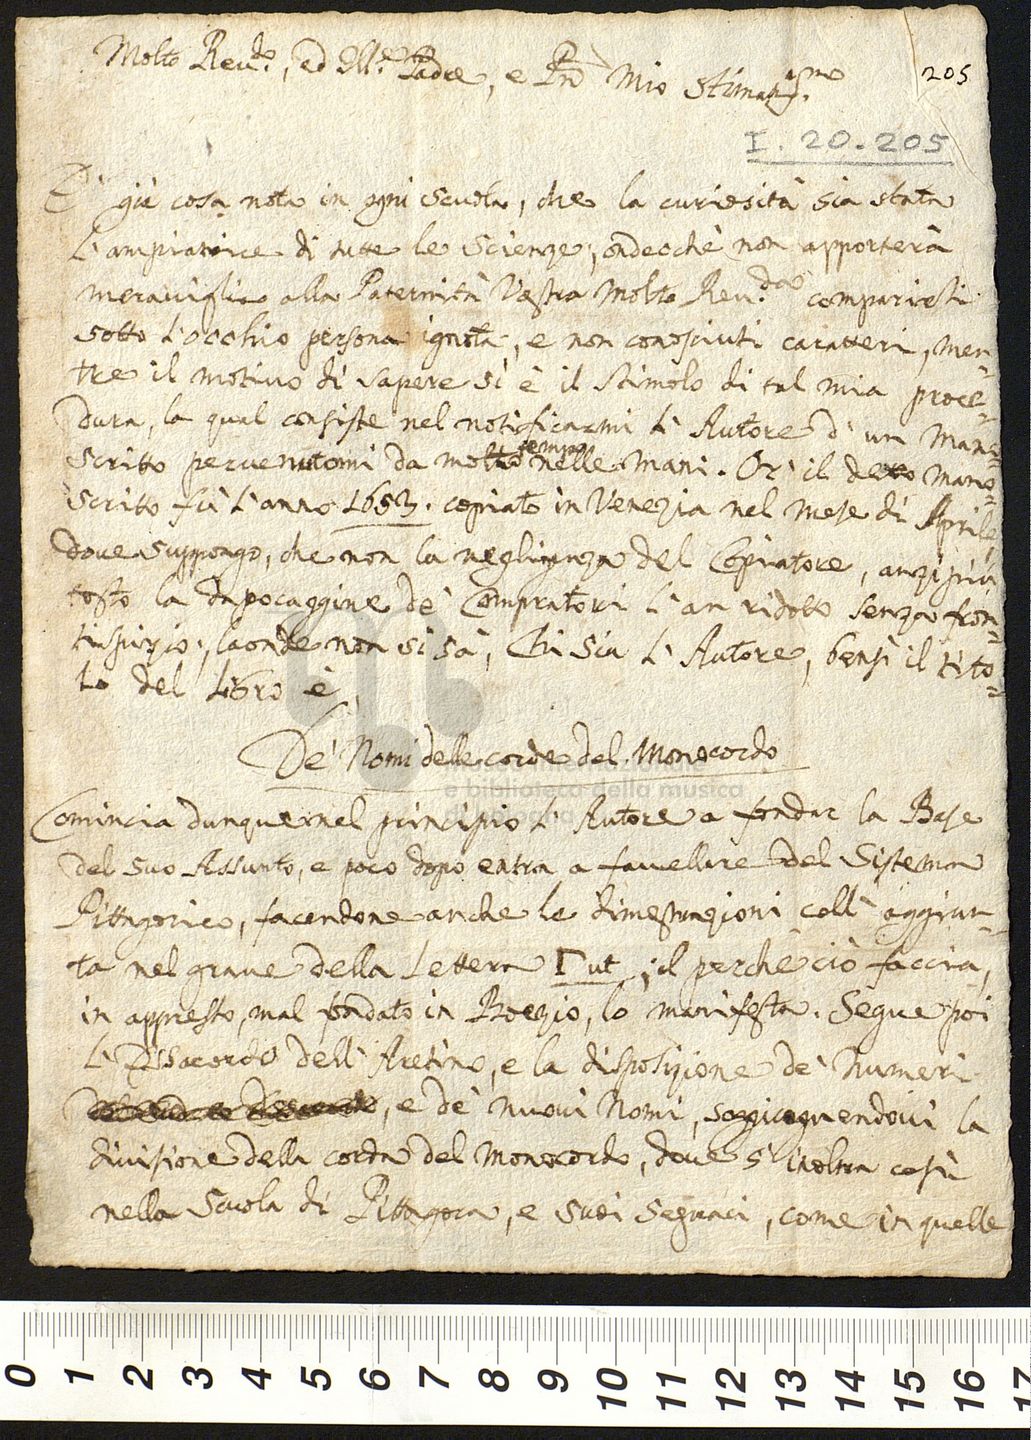 Molto Reu.do, ed Ill.e Padre, e Prõ Mio Stimatis.mo
205
I. 20. 205
E' già cosa nota in ogni scuola, che la curiosità sia stata
l'ampiatrice di tutte le Scienze, ondecchè non apporterà
merauiglia alla Paternità Vostra Molto Reu.da comparirli
sotto l'occhio persona ignota, e non conosciuti caratteri, men=
tre il motiuo di sapere si è il stimolo di tal mia proce=
dura, la qual consiste nel notificarmi l'Autore d'un manu=
scritto peruenutomi da molto tempo nelle mani. Or' il detto mano=
scritto fù l'anno 1653. copiato in Venezia nel mese di Aprile,
doue suppongo, che non la negligenza del Copiatore, anzi più
tosto la dapocaggine de' Compratori l'an ridotto senza fron=
tispizio, laonde non si sà, Chi sia l'Autore, bensì il tito=
lo del Libro è,
De' Nomi delle corde del Monocordo
Comincia dunque nel principio l'Autore a fondar la Base
del suo Assunto, e poco dopo entra a fauellare del Sistema
Pittagorico, facendone anche le dimostrazioni coll'aggiun=
ta nel graue della Lettera Γ ut, il perchè ciò faccia,
in appresso, mal fondato in Boezio, lo manifesta. Segue poi
l'Essacordo dell'Aretino, e la disposizione de' Numeri
, e de' nuoui Nomi, soggiognendoui la
diuisione della corda del Monocordo, doue s'inoltra così
nella Scuola di Pittagora, e suoi Seguaci, come in quelle
museo internazionale
e biblioteca della musica
di bologna
0 1 2 3 4 5 6 7 8 9 10 11 12 13 14 15 16 17